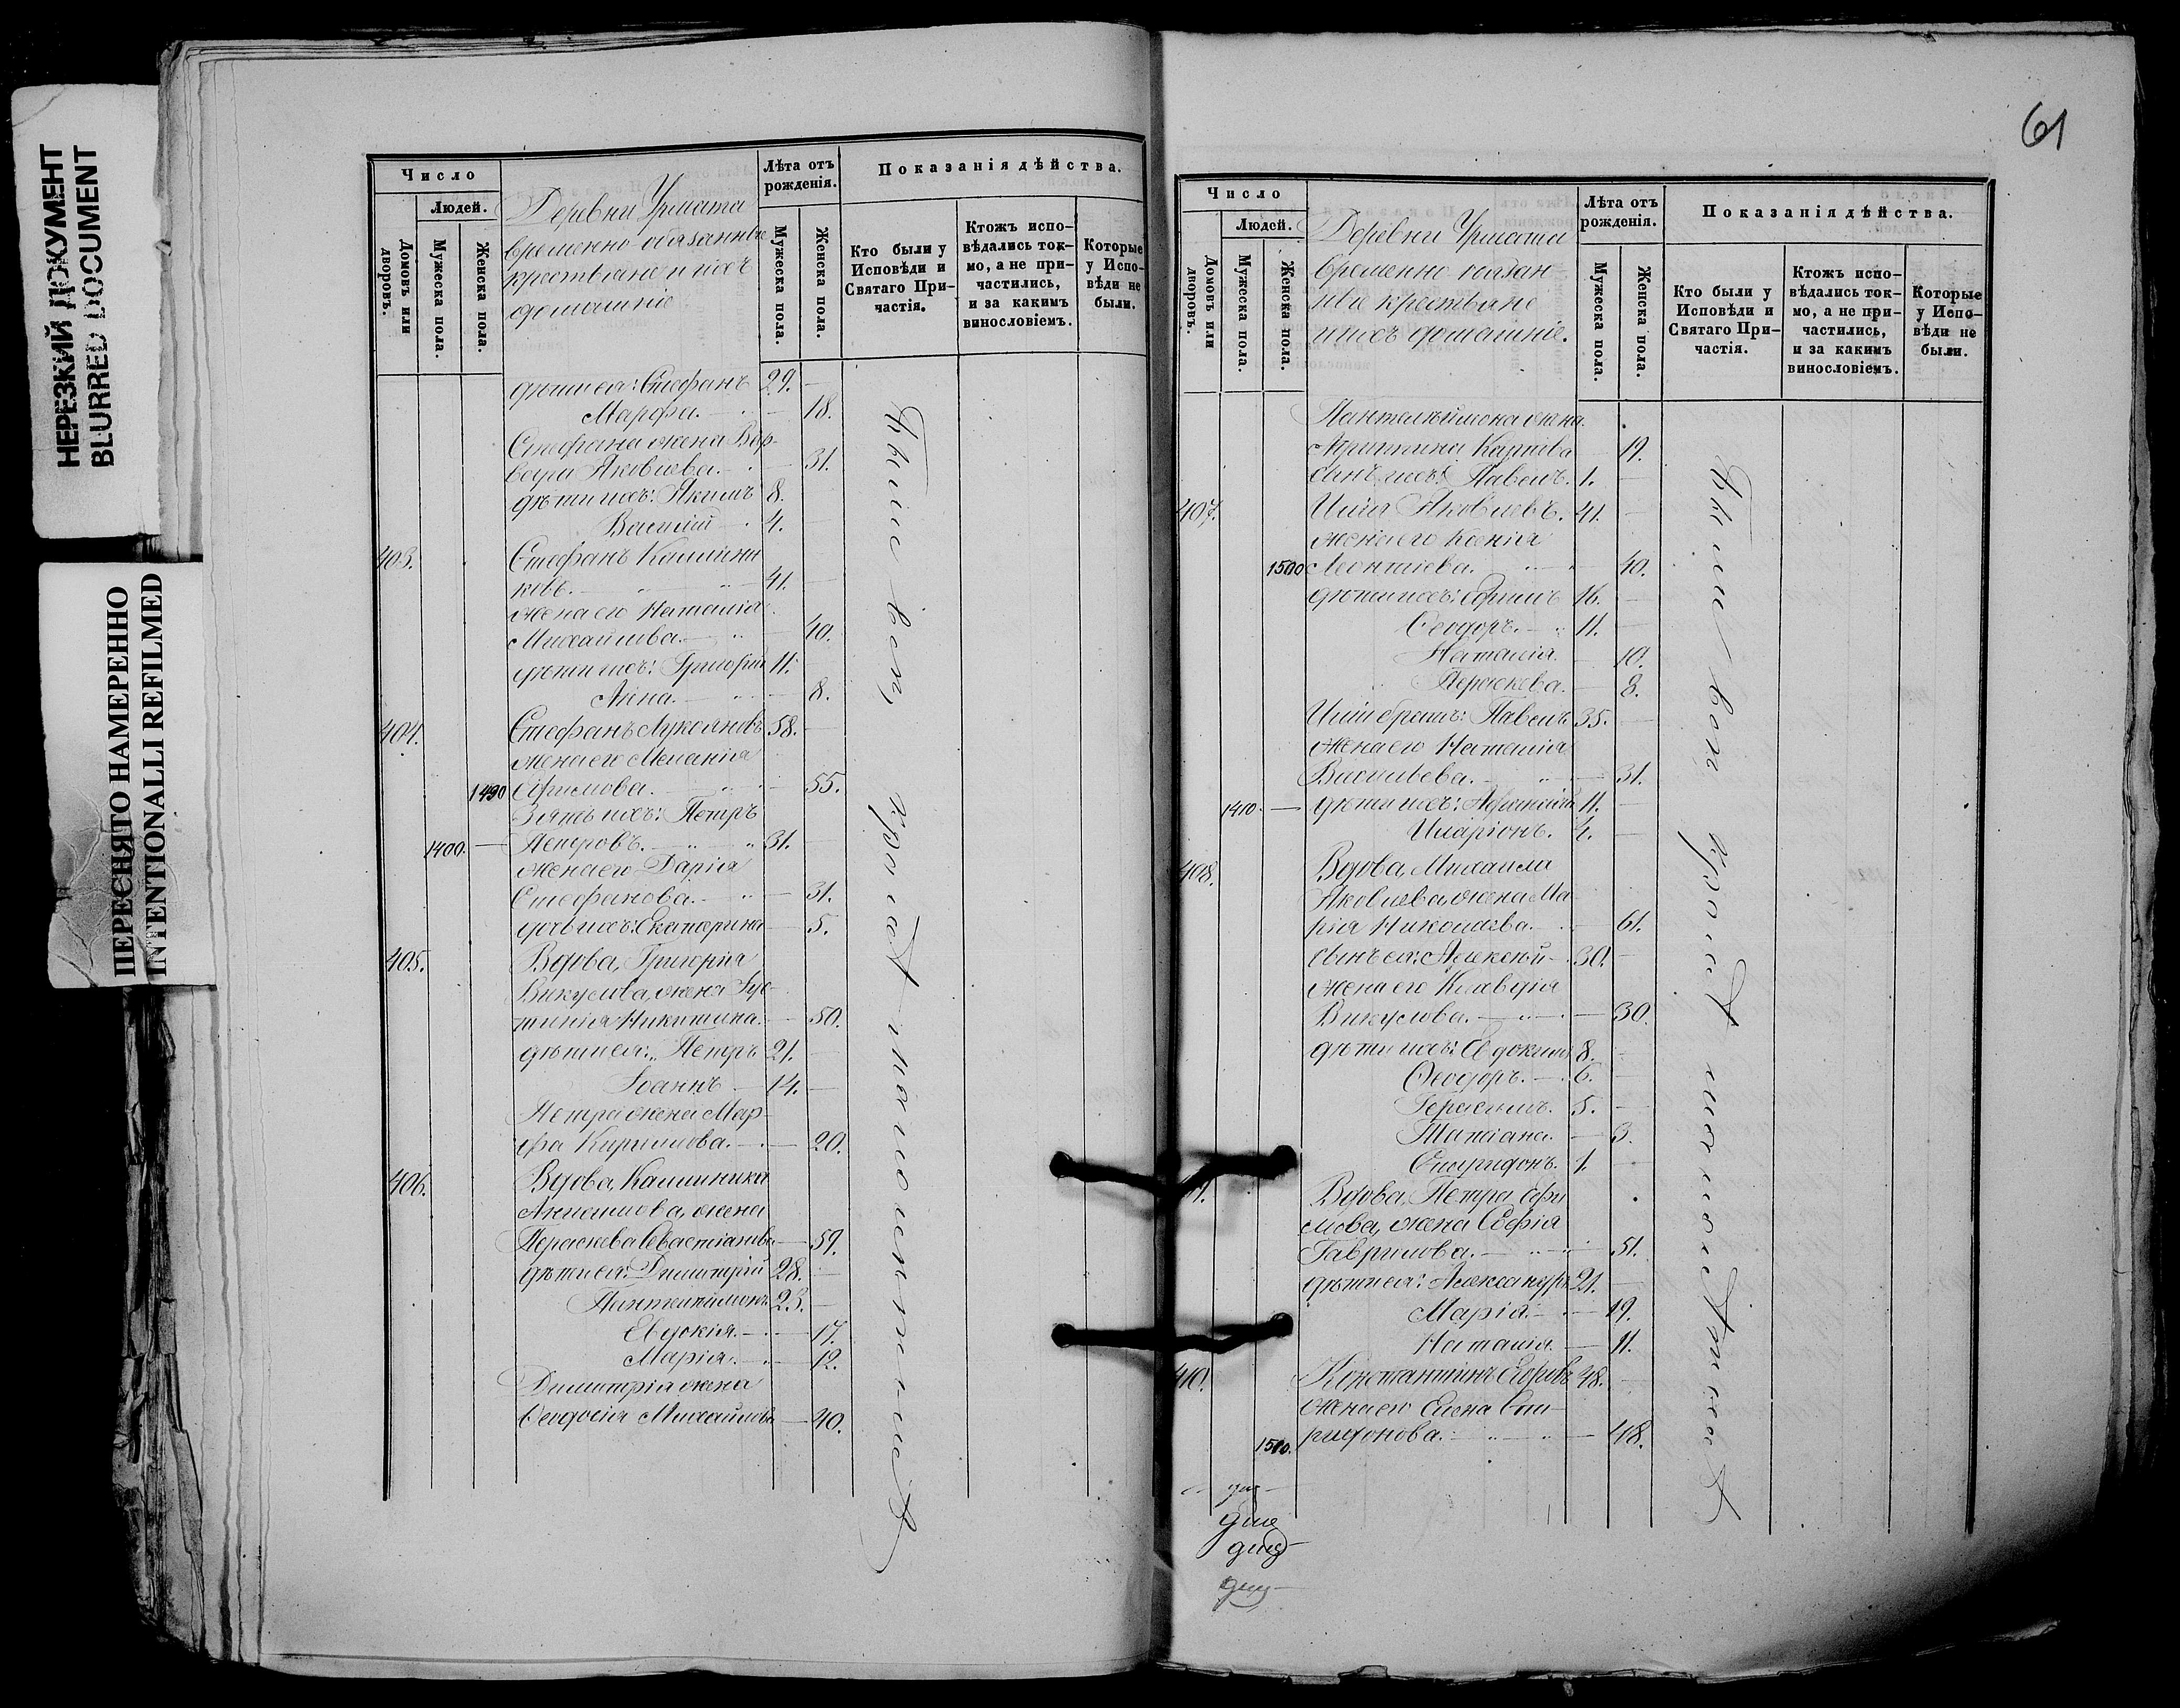 НЕРЕЗКИЙ ДОКУМЕНТ
BLURRED DOCUMENT
ПЕРЕСНЯТО НАМЕРЕННО
INTENTIONALLI REFILMED
Число
Людей.
Домовъ или дворовъ.
Мужеска пола.
Женска пола.
Деревни Урмата
временно обязанные
крестьяне и ихъ
домашніе
Лѣта отъ рожденія.
Мужеска пола.
Женска пола.
Показанія дѣйства.
Кто были у Исповѣди и Святаго Причастія.
Ктожъ исповѣдались токмо, а не причастились, и за какимъ винословіемъ.
Которые у Исповѣди не были.
дѣти ея: Стефанъ 29.
Марфа. 18.
Стефана жена Вар-
вара Яковлева. 31.
дѣти ихъ: Якимъ 8.
Василій 4.
403. Стефанъ Каллини
ковъ. 41.
жена его Наталія
Михайлова. 40.
дѣти ихъ: Григорій 11.
Анна. 8.
404. Стефанъ Лукояновъ 58.
жена его Меланія
1490 Ефимова. 55.
Зять ихъ: Петръ
1400. Петровъ. 31.
жена его Дарія
Стефанова. 31.
дочь ихъ: Екатерина 5.
405. Вдова, Григорія
Викулова, жена Іус-
тинія Никитина. 50.
дѣти ея: Петръ 21.
Іоаннъ 14.
Петра жена Мар-
фа Кирилова. 20.
406. Вдова, Каллиника
жена
Параскева Севастіанова 59.
дѣти ея: Димитрій 28.
Пантелиймонъ 23.
Евдокія. 17.
Марія. 12.
Димитрія жена
Ѳеодосія Михайлова 40.
61
Число
Людей.
Домовъ или дворовъ.
Мужеска пола.
Женска пола.
Деревни Урмата
временно обязан
ные крестьяне
и ихъ домашніе.
Лѣта отъ рожденія.
Мужеска пола.
Женска пола.
Показанія дѣйства.
Кто были у Исповѣди и Святаго Причастія.
Ктожъ исповѣдались токмо, а не причастились, и за какимъ винословіемъ.
Которые у Исповѣди не были.
Пантелѣймона жена
Карпова 19.
Сынъ ихъ: Павелъ. 1.
407. Илія Яковлевъ. 41.
жена его Ксенія
1500 Леонтіева. 40.
дѣти ихъ: Ефимъ 16.
Ѳеодоръ. 11.
Наталія. 10.
Параскева. 8.
Иліи братъ: Павелъ 35.
жена его Наталія
Васильева. 31.
1410. дѣти ихъ: 11.
Иларіонъ. 4.
408. Вдова, Михаила
Яковлева, жена Ма
рія Николаева. 61.
сынъ ея: Алексѣй 30.
жена его Клавдія
Викулова. 30.
дѣти ихъ: Евдокимъ 8.
Ѳеодоръ. 6.
Герасимъ. 5.
Татіана. 3.
Спиридонъ. 1.
Вдова, Петра Ефи
мова, жена Софія
Гаврилова. 51.
дѣти ея: Александръ 21.
Марія. 19.
Наталія. 11.
410. Константинъ Егоровъ 48.
жена его Елена Спи-
1510. ридонова. 48.